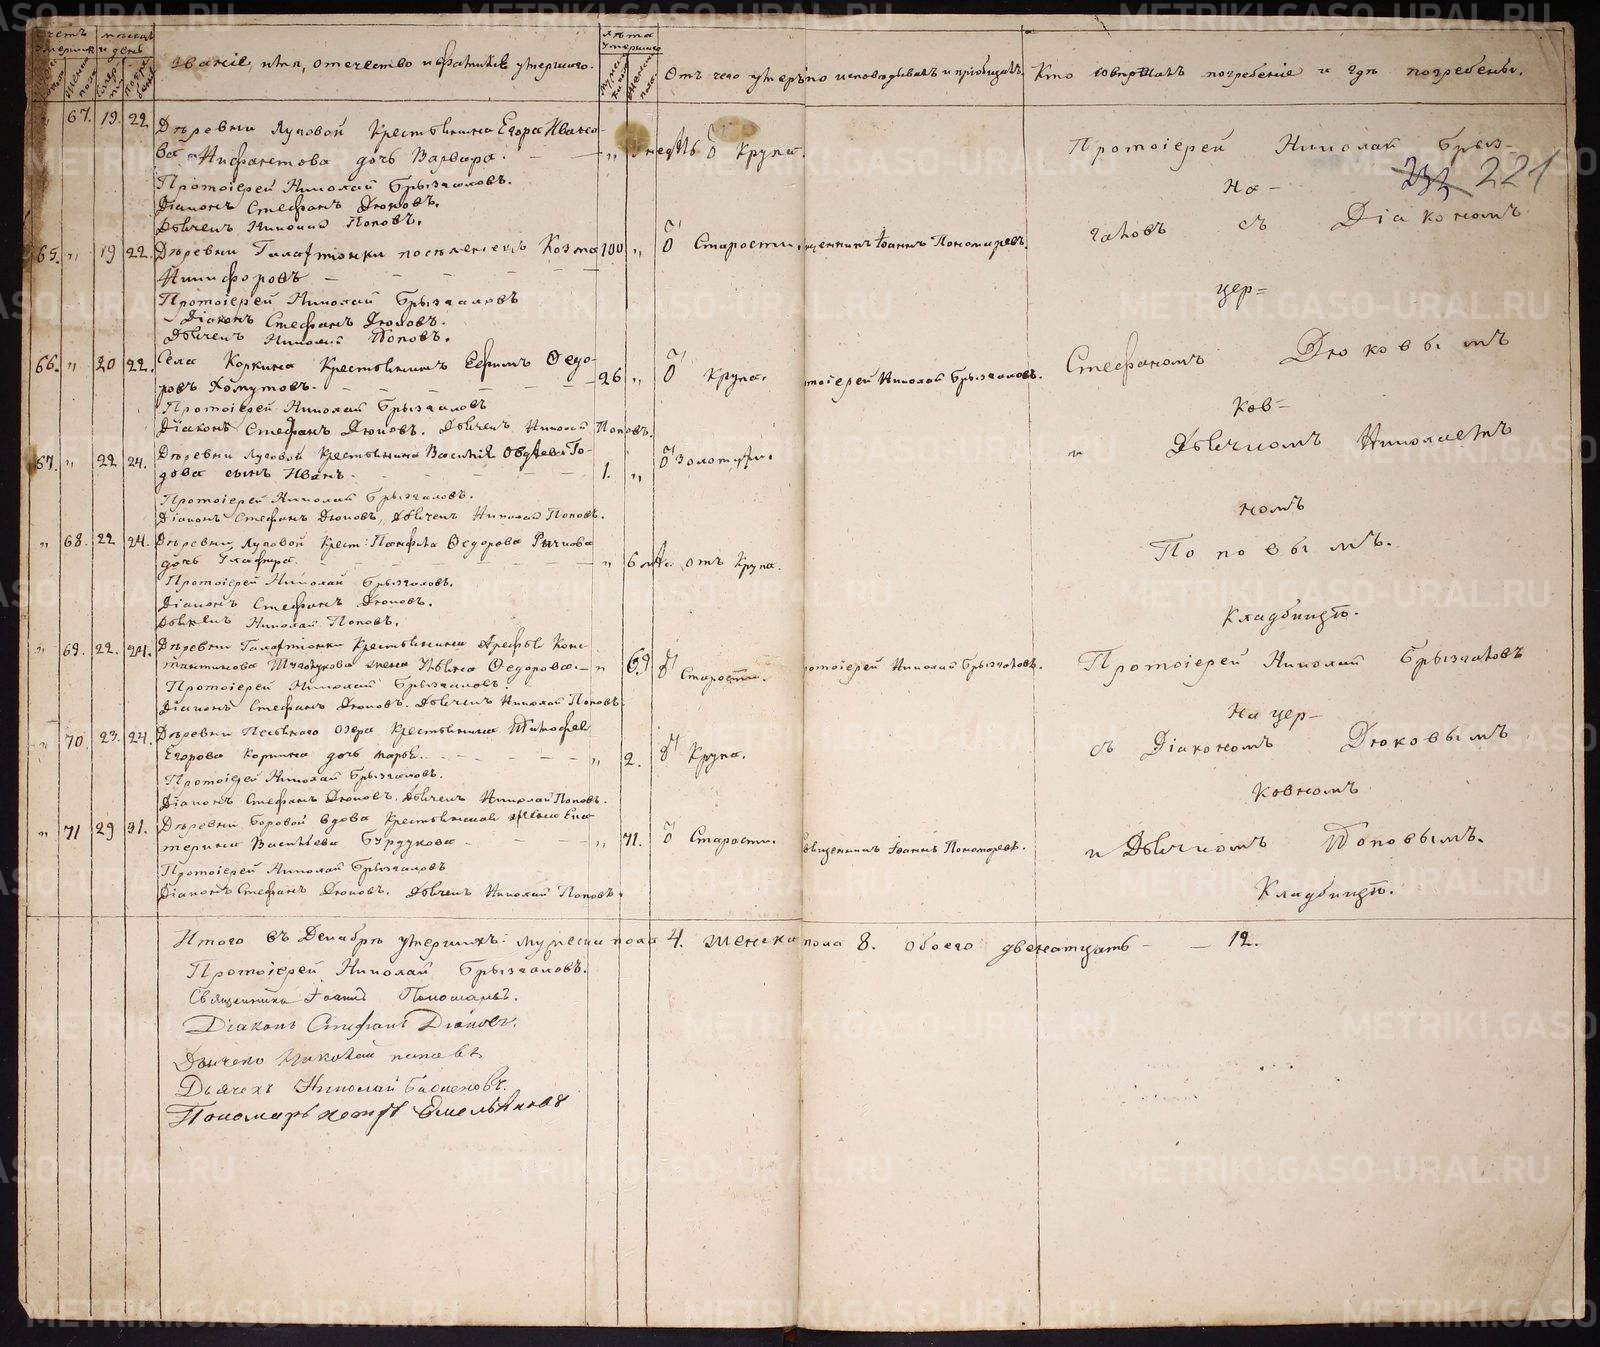 Званіе, имя, отечество и фамилія умершаго.
Лѣта умершаго
Отъ чего умеръ
Кто исповѣдывалъ и пріобщалъ.
Кто совершалъ погребеніе и гдѣ погребены.
„ 67. 19. 22. Деревни Луговой Крестьянина Егора Ивано-
ва дочь Варвара. „ недѣль Ѿ Крупа.
Протоіерей Николай Брызгаловъ.
Діаконъ Стефанъ Дюковъ.
Дьячекъ Николай Поповъ.
65. „ 19 22. Деревни поселенецъ Козма 100 „ Ѿ Старости. Священникъ Іоаннъ Пономаревъ.
Никифоровъ
Протоіерей Николай Брызгаловъ
Діаконъ Стефанъ Дюковъ.
Дьячекъ Николай Поповъ.
66. „ 20 22. Села Коркина Крестьянинъ Ефимъ Ѳедо-
ровъ Хомутовъ. 26 „ Ѿ Крупа. Протоіерей Николай Брызгаловъ.
Протоіерей Николай Брызгаловъ
Діаконъ Стефанъ Дюковъ. Дьячекъ Николай Поповъ.
67. „ 22 24. Деревни Луговой Крестьянина Василія
сынъ Иванъ. 1. „ Ѿ Золотухи.
Протоіерей Николай Брызгаловъ.
Діаконъ Стефанъ Дюковъ, Дьячекъ Николай Поповъ.
„ 68. 22 24. Деревни Луговой Крест: Панфила Ѳедорова
дочь Глафира. „ 6 отъ Крупа.
Протоіерей Николай Брызгаловъ.
Діаконъ Стефанъ Дюковъ.
Дьячекъ Николай Поповъ.
„ 69. 22. 24. Деревни Крестьянина Арефы Конс-
тантинова жена Ульяна Ѳедорова. „ 69 Ѿ Старости. Протоіерей Николай Брызгаловъ.
Протоіерей Николай Брызгаловъ.
Діаконъ Стефанъ Дюковъ. Дьячекъ Николай Поповъ.
„ 70. 23. 24. Деревни озера Крестьянина Тимофея
Егорова Коркина дочь Марья. „ 2. Ѿ Крупа.
Протоіерей Николай Брызгаловъ.
Діаконъ Стефанъ Дюковъ. Дьячекъ Николай Поповъ.
„ 71 29 31. Деревни Боровой вдова Крестьянская жена Ека-
терина Васильева Бурдукова „ 71. Ѿ Старости. Священникъ Іоаннъ Пономаревъ.
Протоіерей Николай Брызгаловъ
Діаконъ Стефанъ Дюковъ. Дьячекъ Николай Поповъ.
Протоіерей Николай Брыз-
На
232 221
галовъ съ Діакономъ
цер=
Стефаномъ Дюковымъ
ков-
и Дьячкомъ Николаемъ
номъ
Поповымъ.
Кладбищѣ.
Протоіерей Николай Брызгаловъ
На цер-
съ Діакономъ Дюковымъ
ковномъ
и Дьячкомъ Поповымъ.
Кладбищѣ.
Итого въ Декабрѣ умершихъ: мужеска пола 4. женска пола 8. обоего двенатцать 12.
Протоіерей Николай Брызгаловъ.
Священникъ Іоаннъ
Діаконъ Стефанъ Дюковъ.
Дьячекъ Николай Поповъ
Дьячекъ Николай
Пономарь Петръ Емельяновъ
METRIKI.GASO-URAL.RU